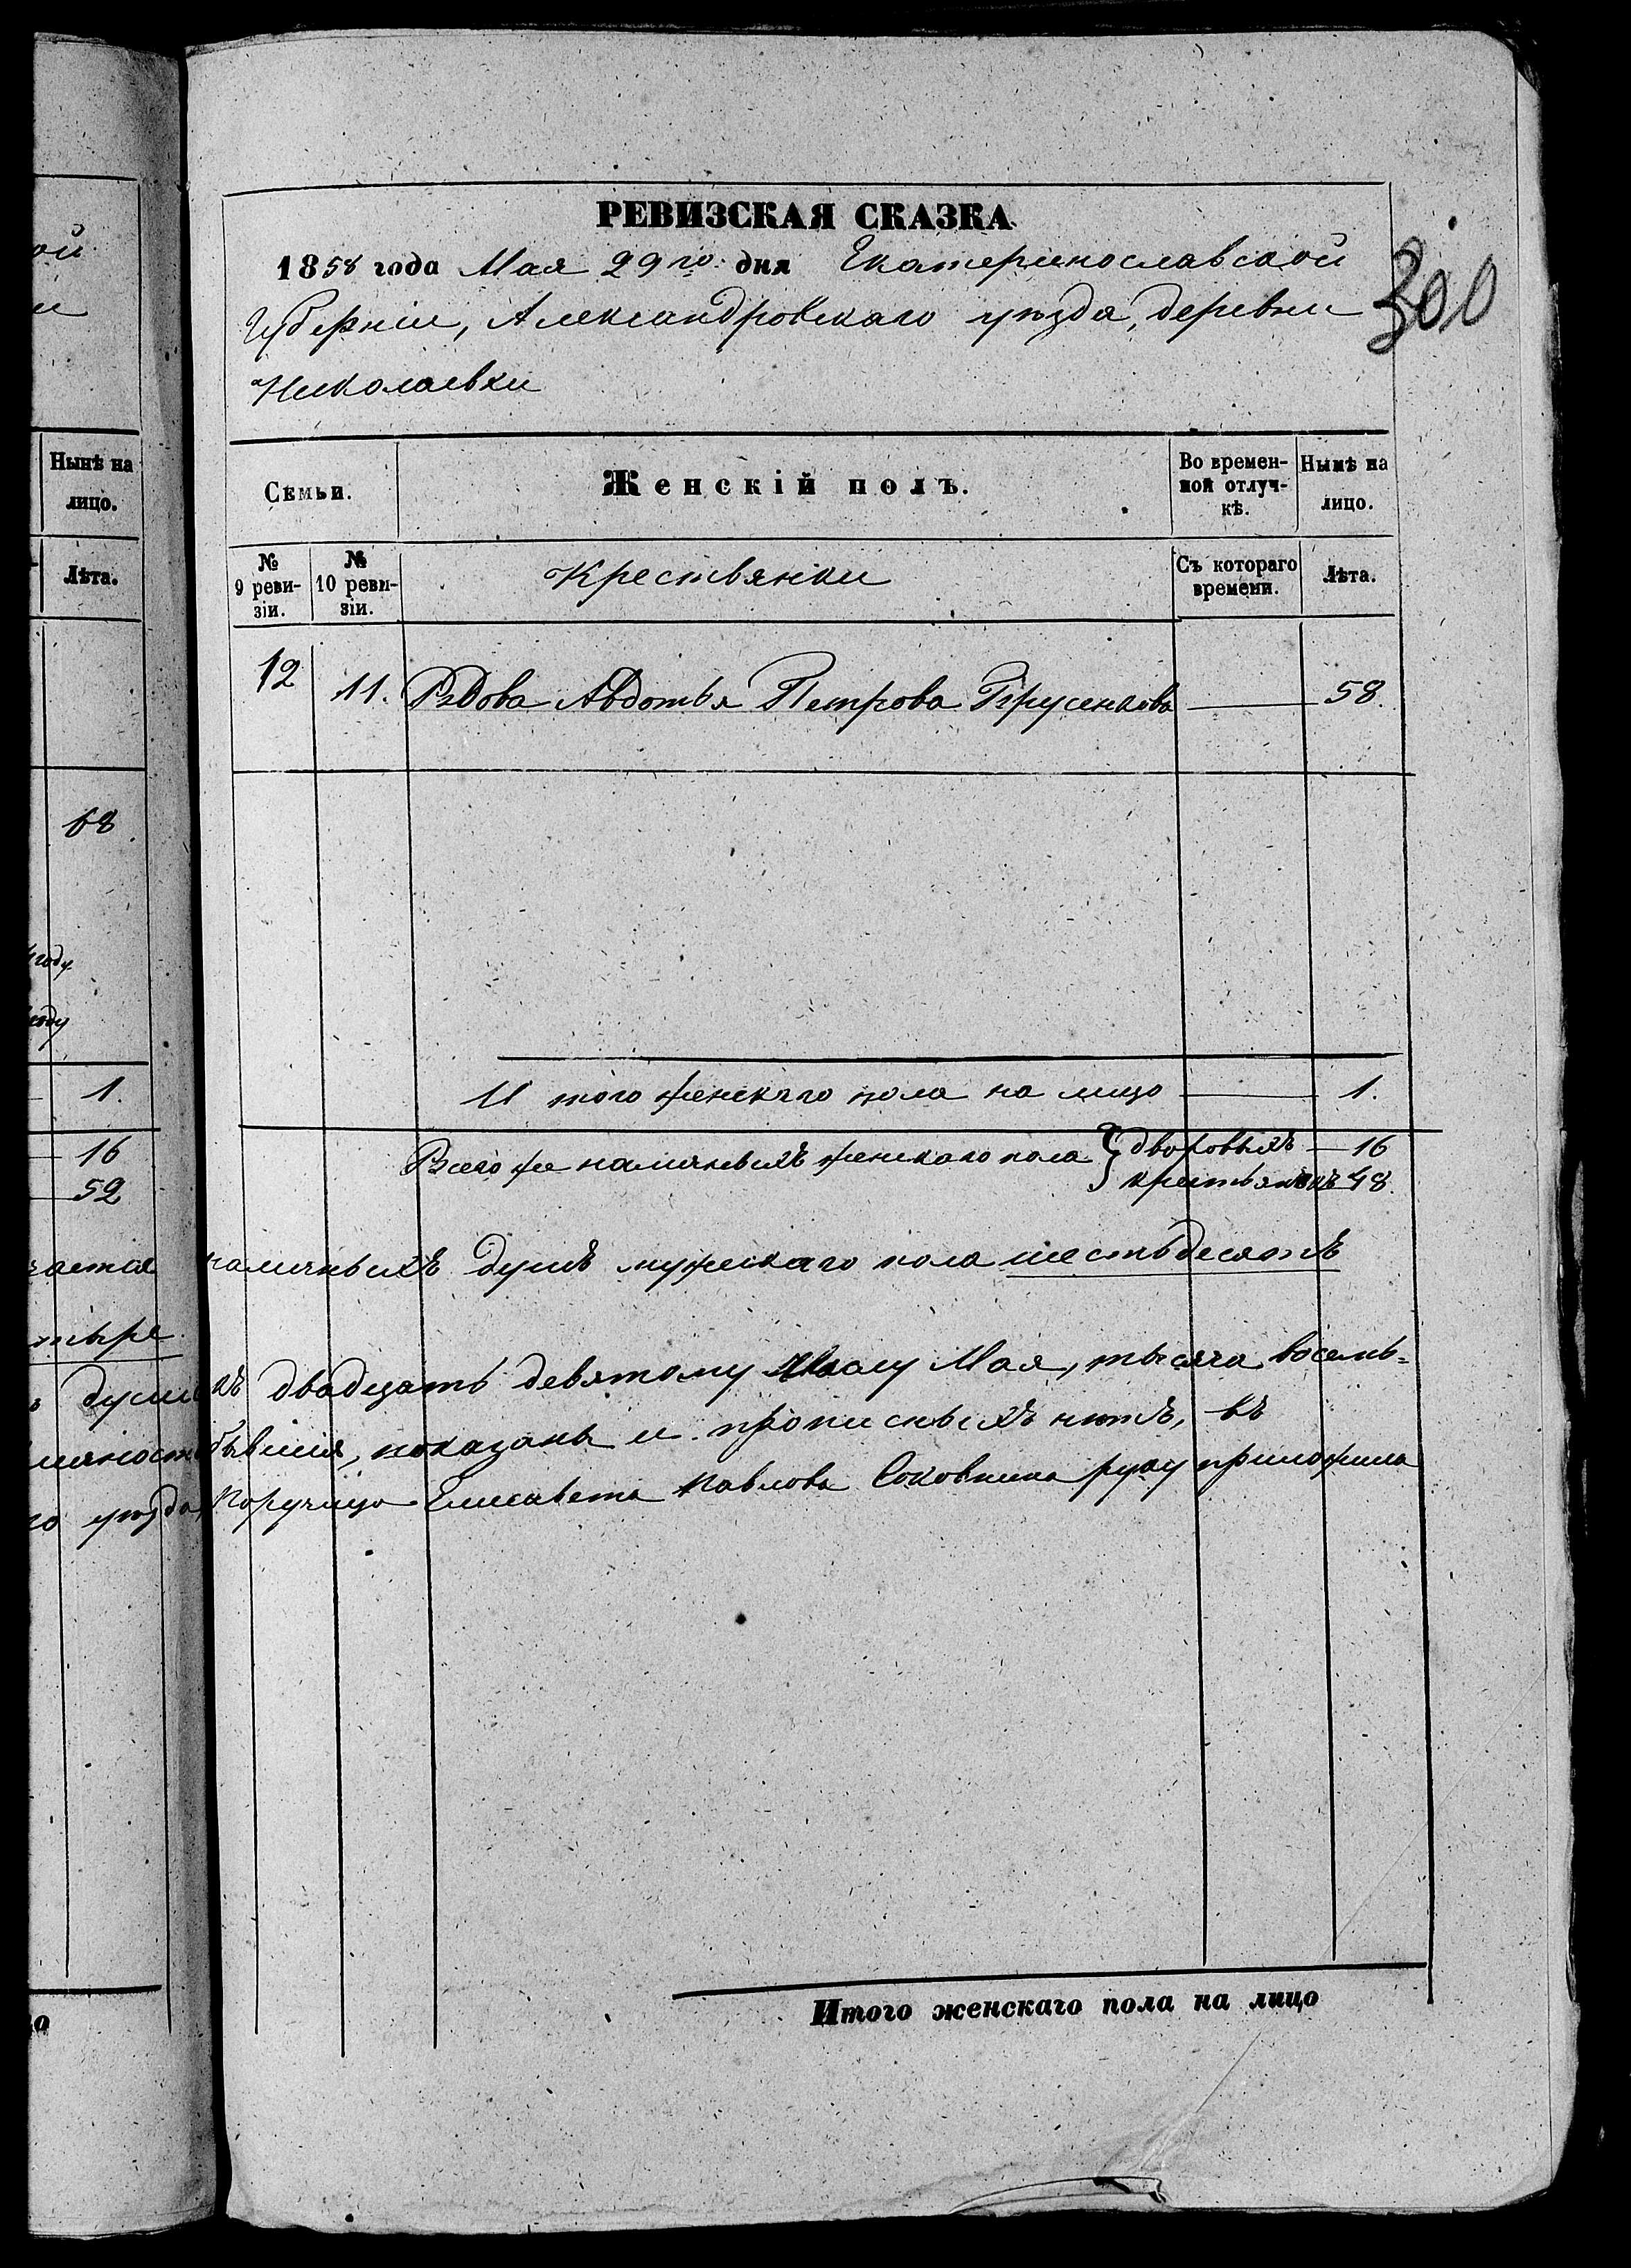 РЕВИЗСКАЯ СКАЗКА
1858 года Мая 29го дня Екатеринославской
Губерніи, Александровскаго уѣзда, деревни
Николаевки
300
Семьи.
Женскій полъ.
Во времен-
ной отлуч-
кѣ.
Нынѣ на
лицо.
№
9 реви-
зіи.
№
10 реви-
зіи.
Крестьянки
Съ котораго
времени.
Лѣта.
12 11. Вдова Авдотья Петрова 58.
Итого женскаго пола на лицо 1.
Всего же наличныхъ женскаго пола { дворовыхъ 16
крестьянокъ 48.
наличныхъ душъ мужескаго пола шестьдесятъ
къ двадцать девятому Мая, тысяча восемь=
бывшія, показаны и прописныхъ нѣтъ, въ
Поручица Елисавета Павлова Соковнина руку приложила
Итого женскаго пола на лицо
Нынѣ на
лицо.
Лѣта.
68
году
году
1.
16
52
душъ
уѣзда,